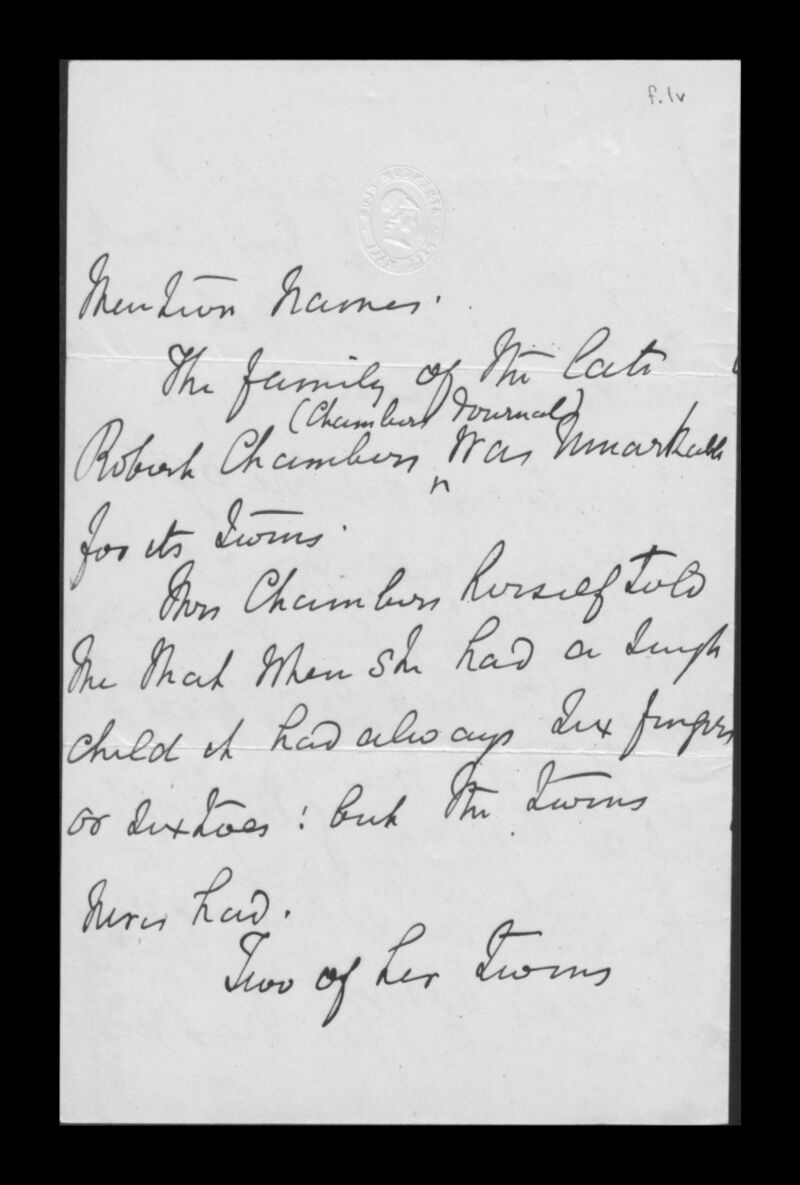 f.1v
Mention names.
The family of the late
(Chambers Journal)
Robert Chambers ^ was remarkable
for its twins.
Mrs Chambers herself told
me that when she had a single
child it had always six fingers
or six toes: but the twins
never had.
Two of her twins